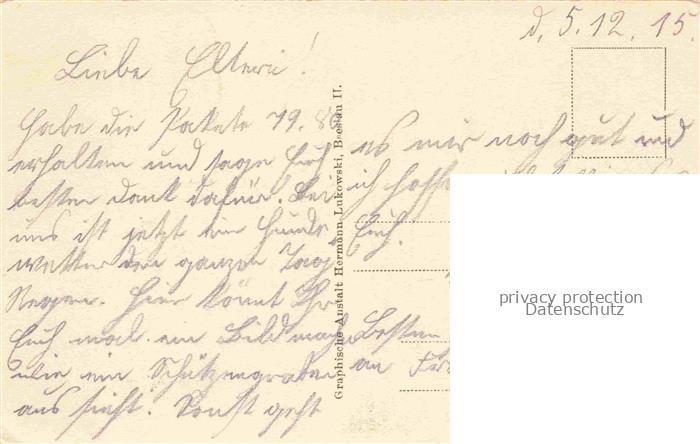 d. 5.12.15.
Liebe Eltern!
Habe die Pakete 79. 80
erhalten und sage Euch
besten Dank dafür. Bei
uns ist jetzt ein Hunde
wetter den ganzen Tag
Regen. Hier könnt Ihr
Euch mal ein Bild machen
wie ein Schützengraben
aus sieht. Sonst geht
es mir noch gut und
ich hoffe
Euch.
Besten
an
Graphische Anstalt Hermann Lukowski, Breslau II.
privacy protection
Datenschutz